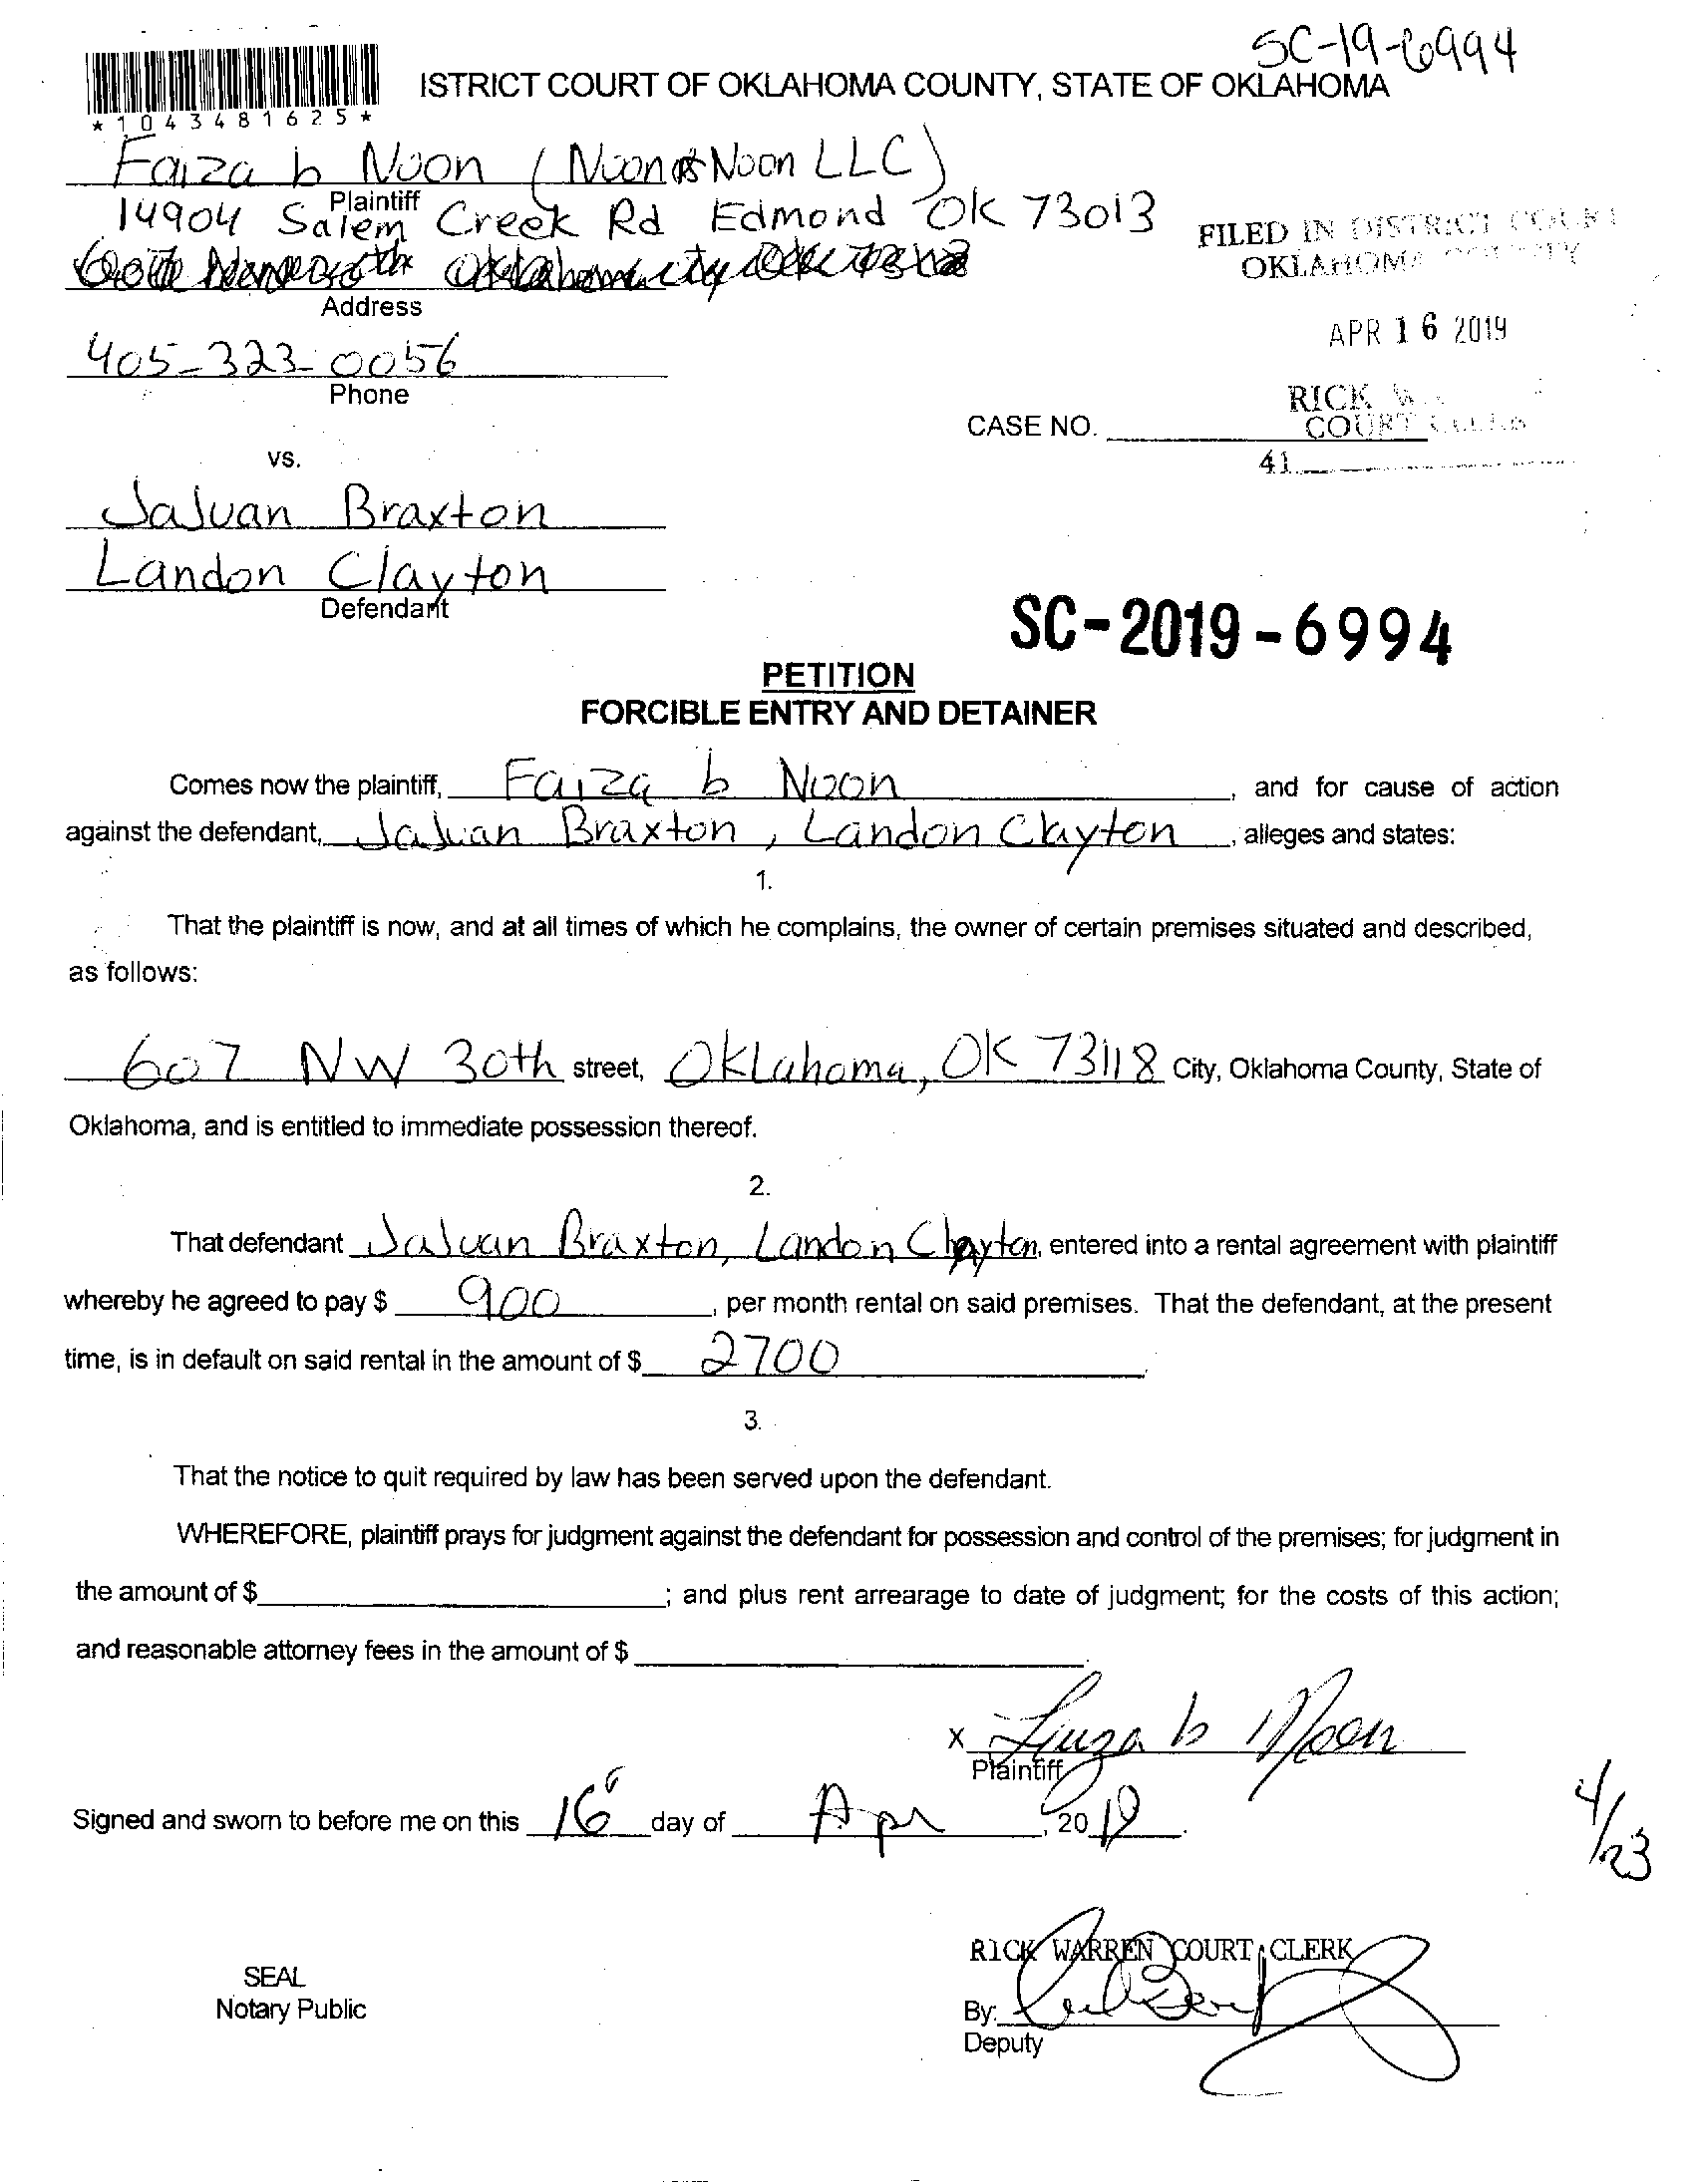 SC-19-6994
ISTRICT COURT OF OKLAHOMA COUNTY, STATE OF OKLAHOMA
*1043481625*
Faiza b Noon (Noon & Noon LLC)
Plaintiff
14904 Salem Creek Rd Edmond OK 73013
Address
FILED IN DISTRICT COURT
OKLAHOMA COUNTY
APR 16 2019
405-323-0056
Phone
RICK
COURT CLERK
CASE NO.
41
vs.
JaJuan Braxton
Landon Clayton
Defendant
SC-2019-6994
PETITION
FORCIBLE ENTRY AND DETAINER
Comes now the plaintiff, Faiza b Noon, and for cause of action
against the defendant, JaJuan Braxton, Landon Clayton, alleges and states:
1.
That the plaintiff is now, and at all times of which he complains, the owner of certain premises situated and described,
as follows:
607 NW 30th street, Oklahoma, OK 73118 City, Oklahoma County, State of
Oklahoma, and is entitled to immediate possession thereof.
2.
That defendant JaJuan Braxton, Landon Clayton, entered into a rental agreement with plaintiff
whereby he agreed to pay $ 900, per month rental on said premises. That the defendant, at the present
time, is in default on said rental in the amount of $ 2700.
3.
That the notice to quit required by law has been served upon the defendant.
WHEREFORE, plaintiff prays for judgment against the defendant for possession and control of the premises; for judgment in
the amount of $ ; and plus rent arrearage to date of judgment; for the costs of this action;
and reasonable attorney fees in the amount of $ .
x Faiza b Noon
Plaintiff
Signed and sworn to before me on this 16 day of Apr, 2019.
4/23
RICK WARREN COURT CLERK
SEAL
Notary Public
By:
Deputy